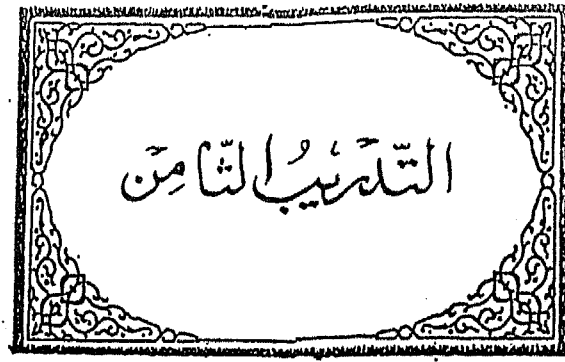 التّدريبُ الثّامِن